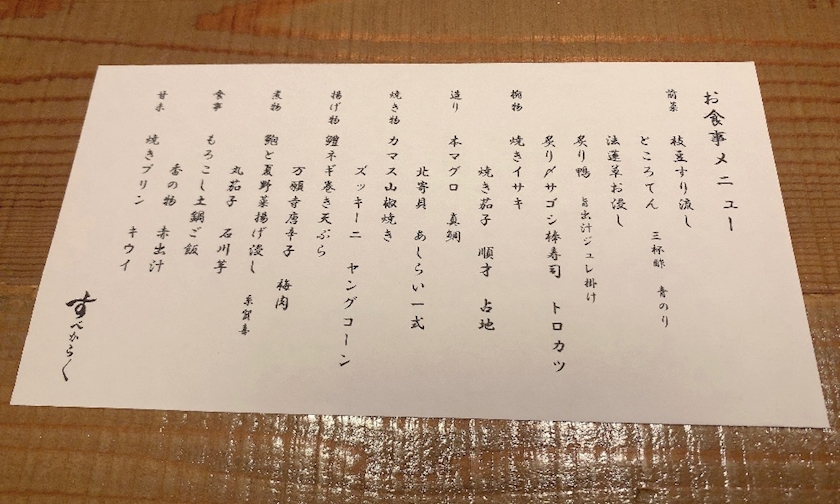 お食事メニュー
前菜 枝豆すり流し
ところてん 三杯酢 青のり
法蓮草お浸し
炙り鴨 旨出汁ジュレ掛け
炙り〆サゴシ棒寿司 トロカツ
椀物 焼きイサキ
焼き茄子 順才 占地
造り 本マグロ 真鯛
北寄貝 あしらい一式
焼き物 カマス山椒焼き
ズッキーニ ヤングコーン
揚げ物 鱧ネギ巻き天ぷら
万願寺唐辛子 梅肉
煮物 鮑と夏野菜揚げ浸し
丸茄子 石川芋 糸賀喜
食事 もろこし土鍋ご飯
香の物 赤出汁
甘味 焼きプリン キウイ
すべからく